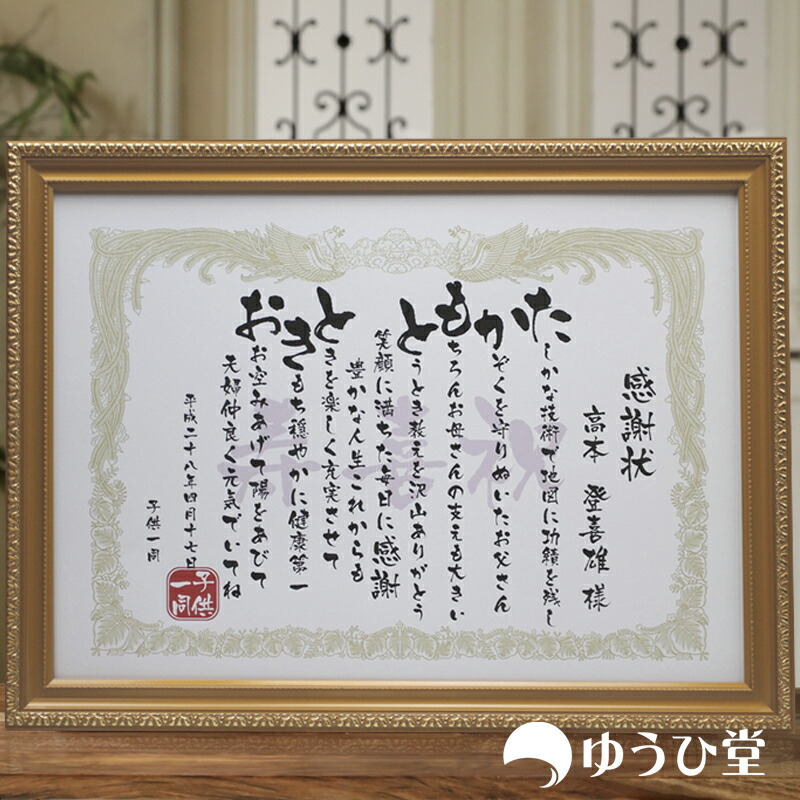 感謝状
高本 登喜雄 様
たしかな技術で地図に功績を残し
かぞくを守りぬいたお父さん
もちろんお母さんの支えも大きい
とうとき教えを沢山ありがとう
笑顔に満ちた毎日に感謝
豊かな人生これからも
ときを楽しく充実させて
きもち穏やかに健康第一
お空みあげて陽をあびて
夫婦仲良く元気でいてね
平成二十八年四月十七日
子供一同
子供一同
祝喜寿
ゆうひ堂